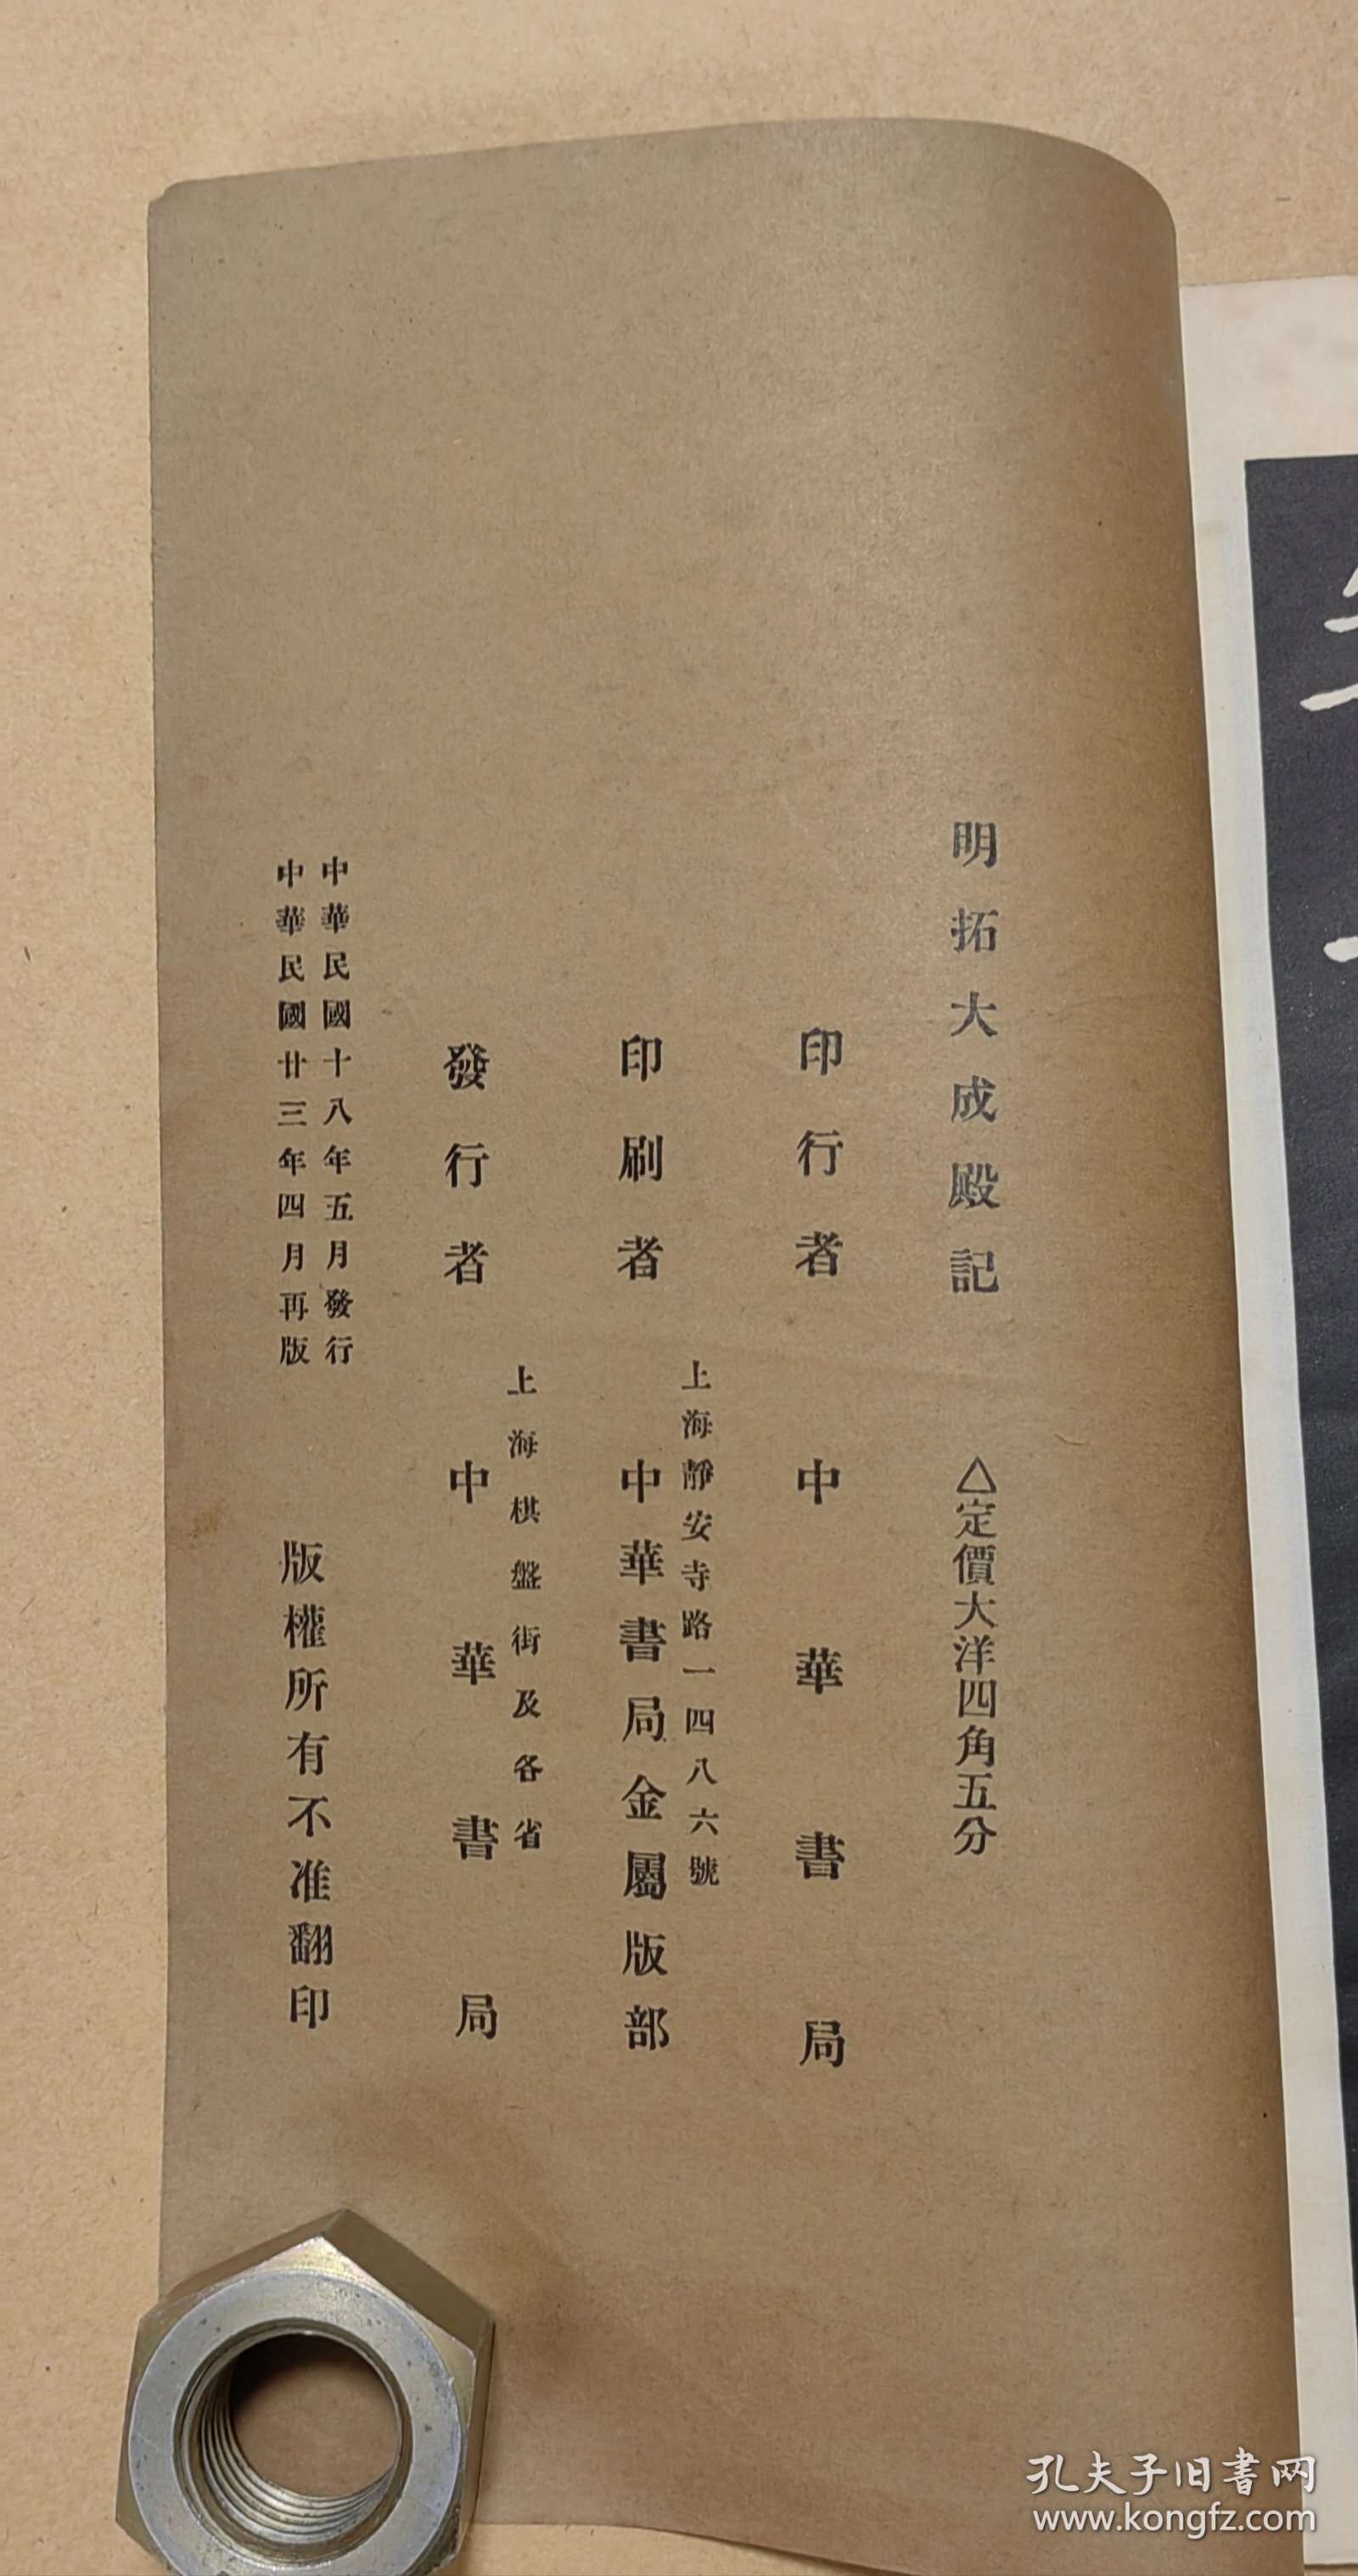 明拓大成殿記
△定價大洋四角五分
印行者
中華書局
印刷者
上海靜安寺路一四八六號
中華書局金屬版部
發行者
上海棋盤街及各省
中華書局
中華民國十八年五月發行
中華民國廿三年四月再版
版權所有不准翻印
孔夫子旧書网
www.kongfz.com